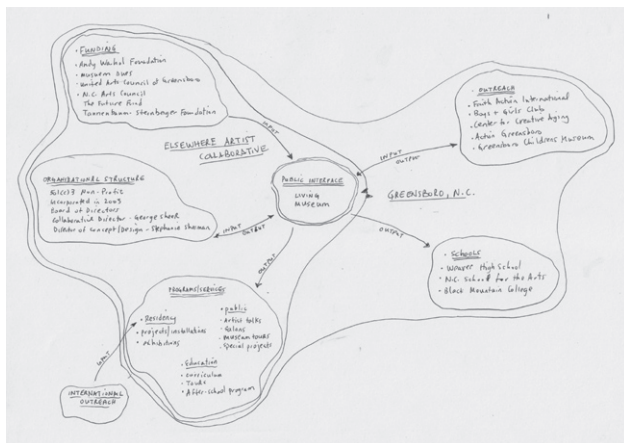 FUNDING
• Andy Warhol Foundation
• Museum Dues
• United Arts Council of Greensboro
• N.C. Arts Council
The Future Fund
Tannenbaum-Sternberger Foundation
INPUT
ELSEWHERE ARTIST
COLLABORATIVE
ORGANIZATIONAL STRUCTURE
Non-Profit
Incorporated in 2003
Board of Directors
Collaborative Director - George Scheer
Director of Concept/Design - Stephanie Sherman
INPUT
OUTPUT
PUBLIC INTERFACE
LIVING
MUSEUM
INPUT
OUTPUT
OUTREACH
• Faith Action International
• Boys + Girls Club
• Center for Creative Aging
• Action Greensboro
• Greensboro Childrens Museum
GREENSBORO, N.C.
OUTPUT
SCHOOLS
• Weaver High School
• N.C. School for the Arts
• Black Mountain College
OUTPUT
PROGRAMS/SERVICES
• Residency
• projects/installation
• exhibitions
• public
• Artist talks
• Galans
• Museum tours
• Special projects
• Education
• curriculum
• Tours
• After-school program
INPUT
INTERNATIONAL
OUTREACH